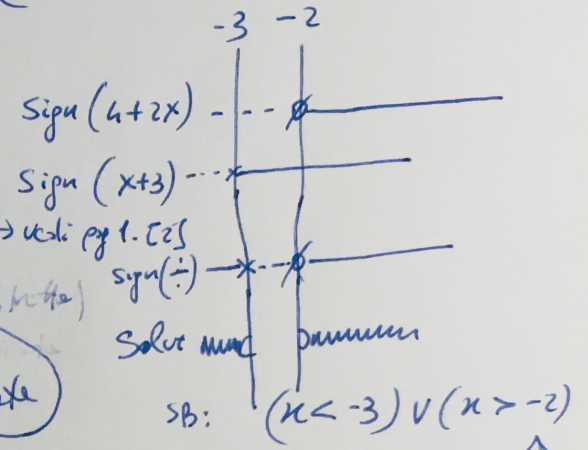 -3 -2
Sign (4+2x)
Sign (x+3)
→ vedi pg 1. [2]
sign(÷)
Solut
SB: (x < -3) ∨ (x > -2)